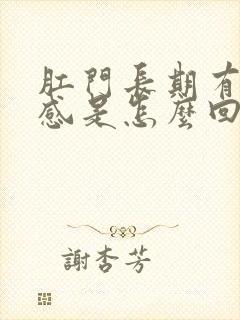 肛門長期有
感是怎麼回
謝杏芳